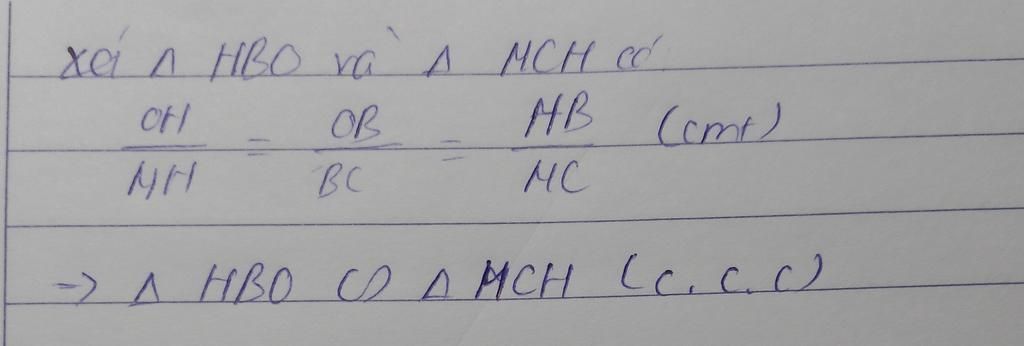 Xét Δ HBO và Δ MCH có
OH/MH = OB/BC = HB/MC (cmt)
=> Δ HBO ∽ Δ MCH (c.c.c)